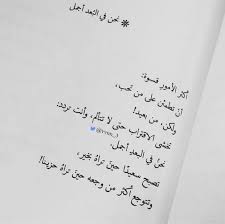 ❋ نحن في البُعد أجمل
أكثر الأمور قسوة:
أن تطمئن على من تحب،
ولكن. من بعيد!
تخشى الاقتراب حتى لا تتألم، وأنت تردد:
نحنُ في البعدِ أجمل.
تصبح سعيدًا حينَ تراهُ بخير،
وتتوجع أكثر من وجعه حينَ تراهُ حزينا!